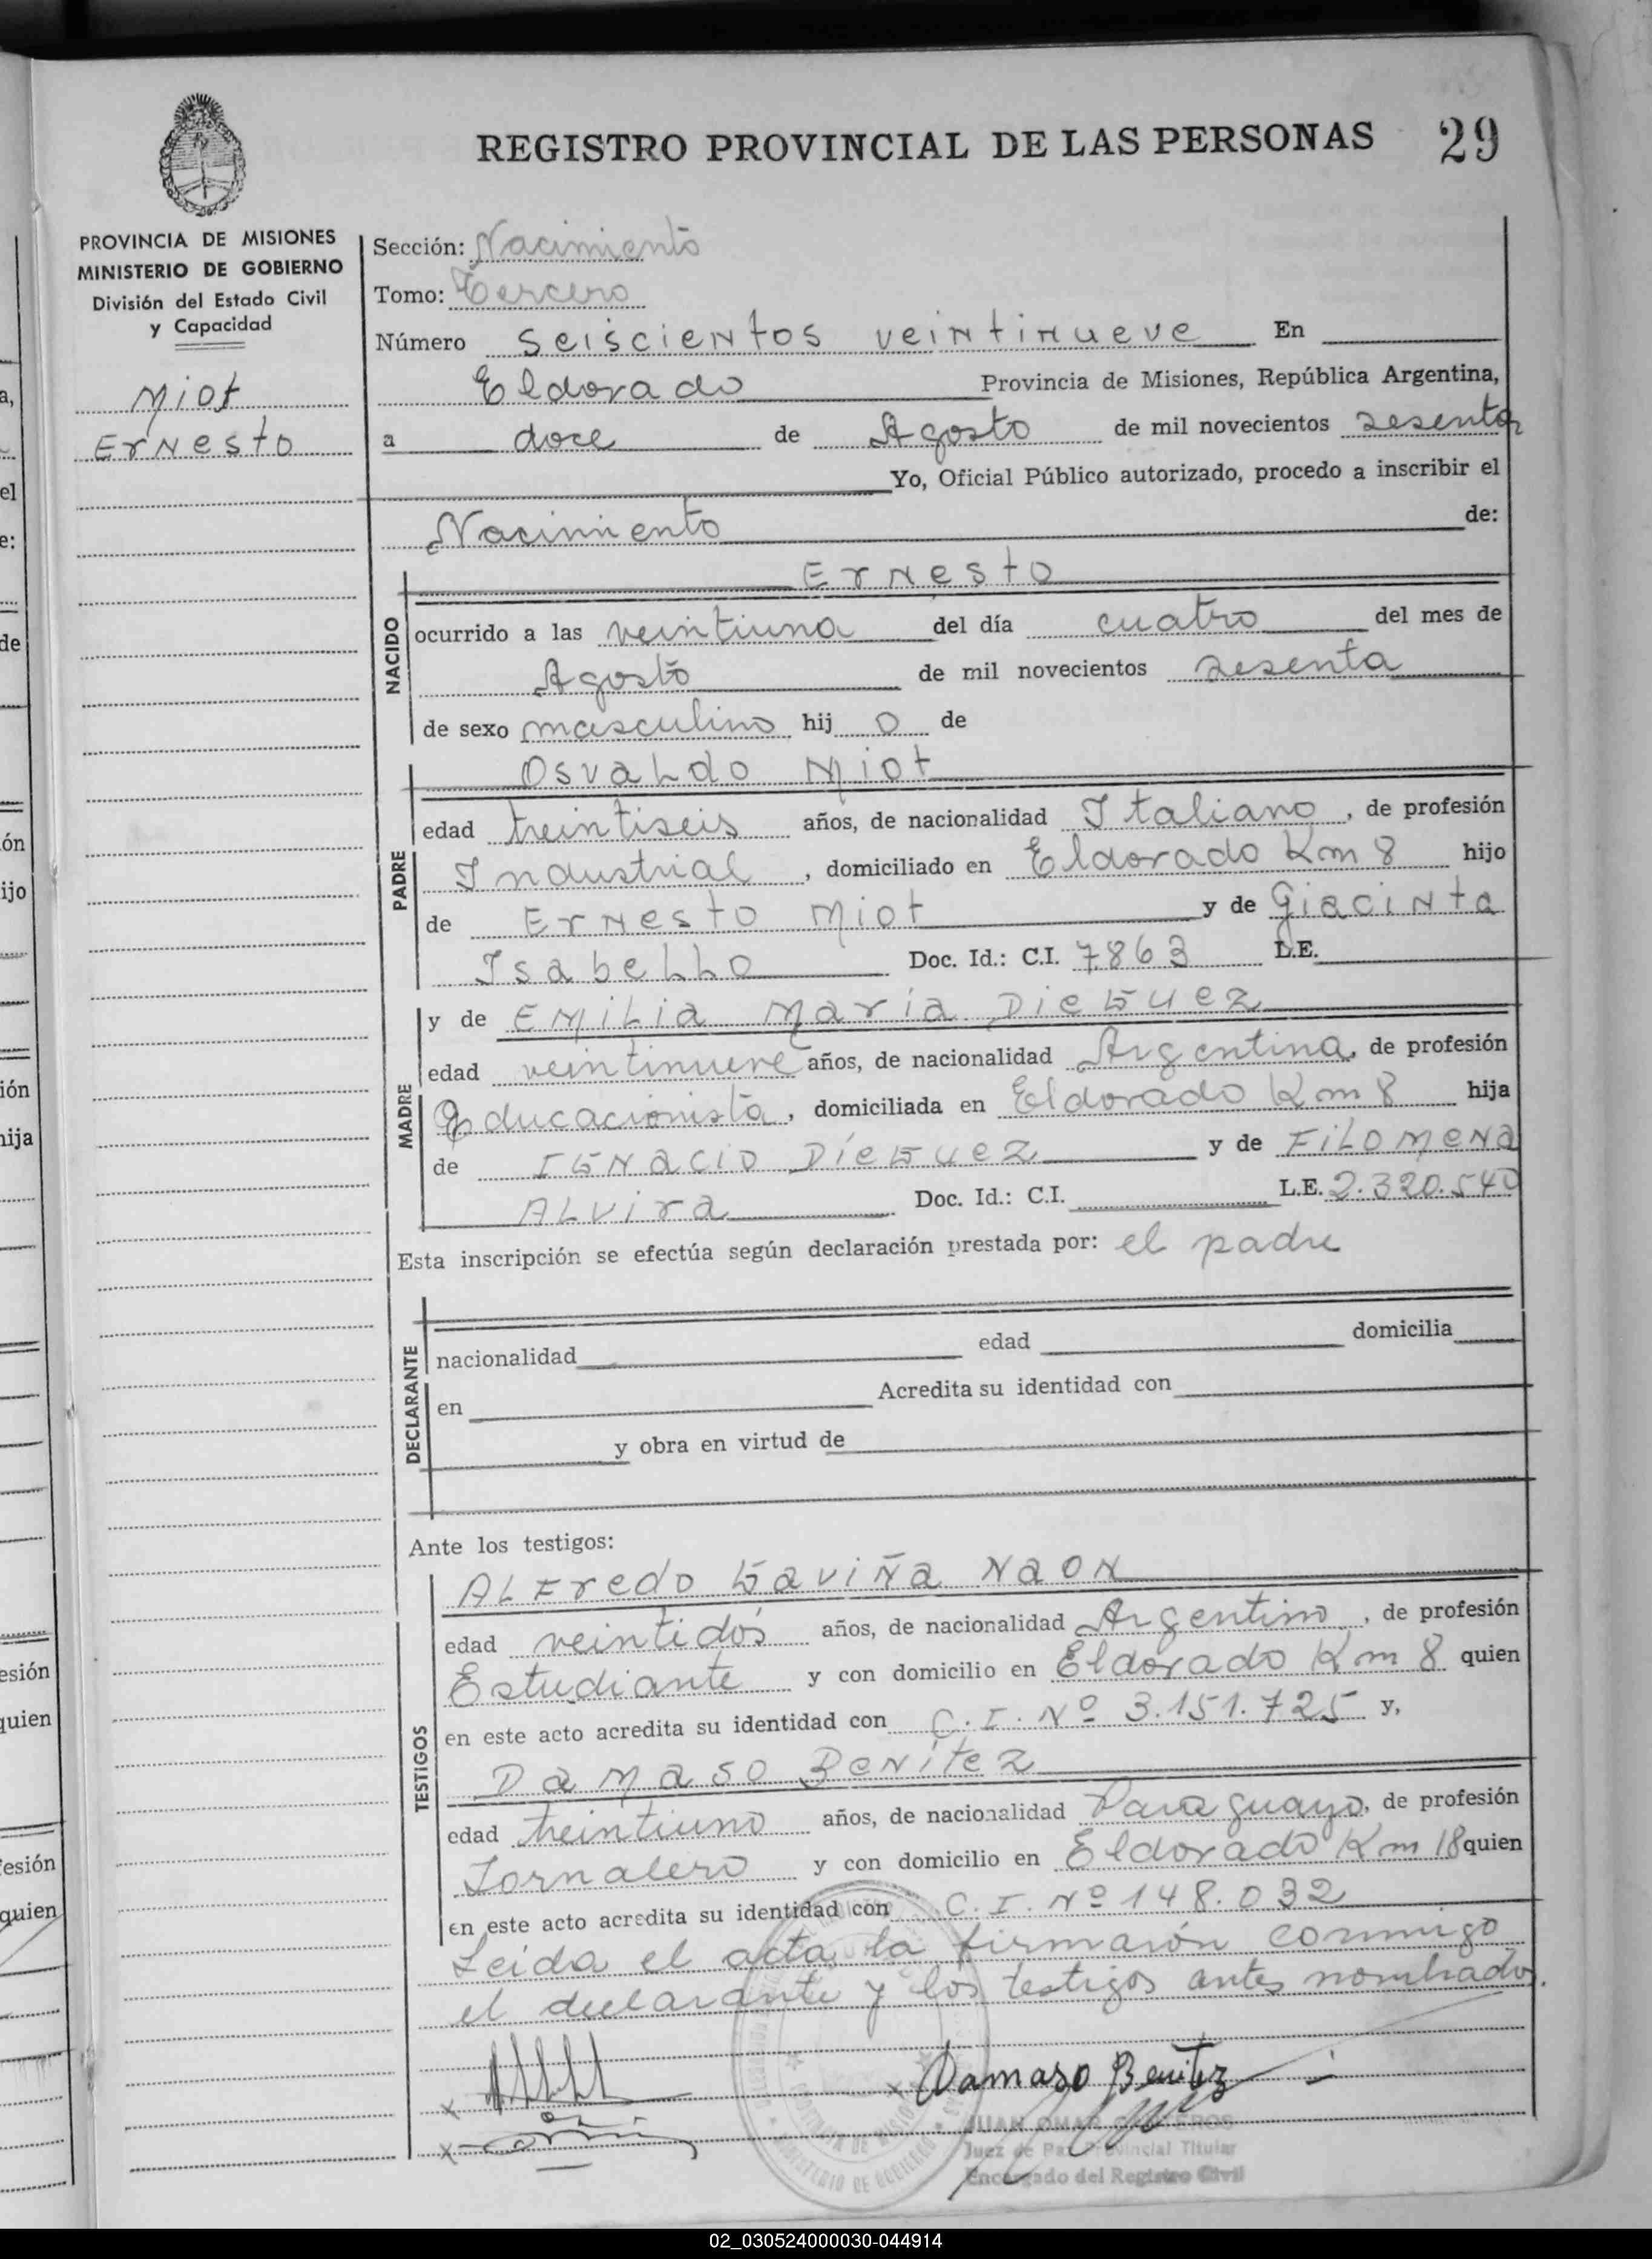 REGISTRO PROVINCIAL DE LAS PERSONAS 29
PROVINCIA DE MISIONES
MINISTERIO DE GOBIERNO
División del Estado Civil
y Capacidad
Miot
Ernesto
Sección: Nacimiento
Tomo: Tercero
Número seiscientos veintinueve En
Eldorado Provincia de Misiones, República Argentina,
a doce de Agosto de mil novecientos sesenta
Yo, Oficial Público autorizado, procedo a inscribir el
Nacimiento de:
Ernesto
NACIDO
ocurrido a las veintiuna del día cuatro del mes de
Agosto de mil novecientos sesenta
de sexo masculino hij o de
Osvaldo Miot
PADRE
edad treintiseis años, de nacionalidad Italiano, de profesión
Industrial, domiciliado en Eldorado Km 8 hijo
de Ernesto Miot y de Giacinta
Isabello Doc. Id.: C.I. 7863 L.E.
y de Emilia María Dieguez
MADRE
edad veintinueve años, de nacionalidad Argentina, de profesión
Educacionista, domiciliada en Eldorado Km 8 hija
de Ignacio Díeguez y de Filomena
Alvira Doc. Id.: C.I. L.E. 2.320.540
Esta inscripción se efectúa según declaración prestada por: el padre
DECLARANTE
nacionalidad edad domicilia
en Acredita su identidad con
y obra en virtud de
Ante los testigos:
Alfredo Gaviña Naon
TESTIGOS
edad veintidós años, de nacionalidad Argentino, de profesión
Estudiante y con domicilio en Eldorado Km 8 quien
en este acto acredita su identidad con C.I. Nº 3.151.725 y,
Damaso Benítez
edad treintiuno años, de nacionalidad Paraguayo, de profesión
Jornalero y con domicilio en Eldorado Km 18 quien
en este acto acredita su identidad con C.I. Nº 148.032
Leida el acta, la firmarón conmigo
el declarante y los testigos antes nombrados.
x x Damaso Benitez
x JUAN OMAR
Juez de Paz Provincial Titular
Encargado del Registro Civil
02_030524000030-044914